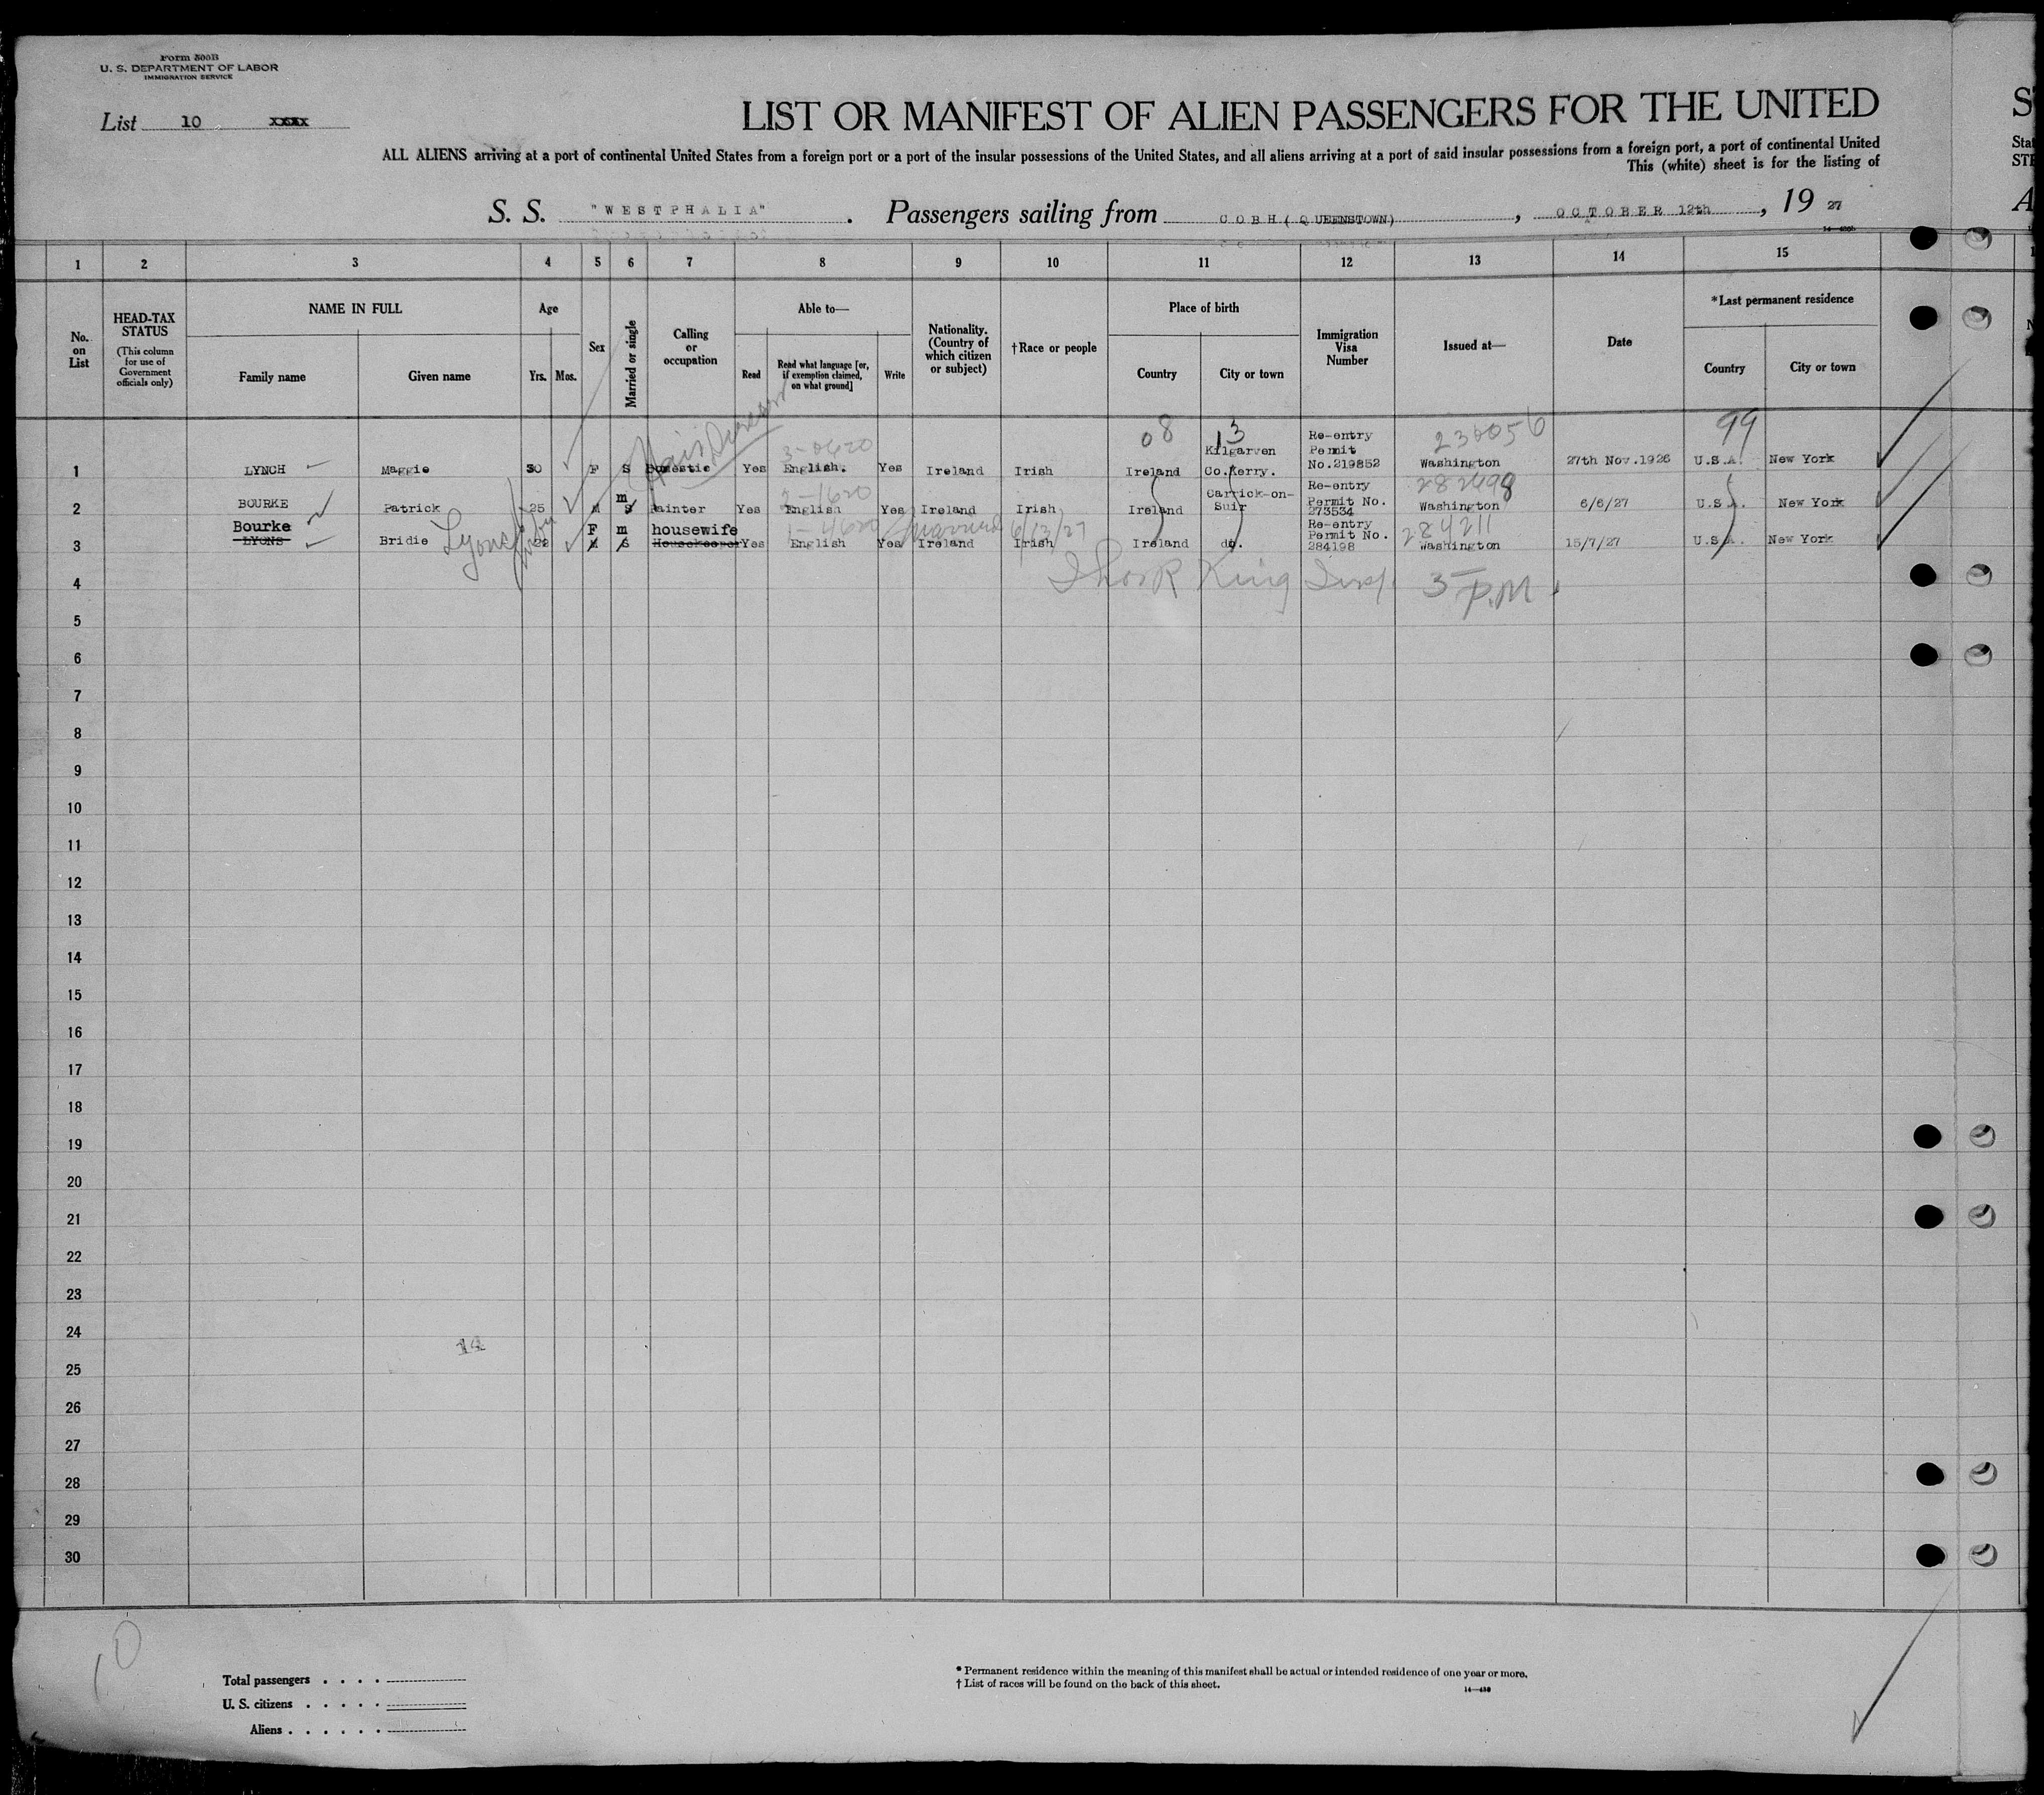 Form 500B
U. S. DEPARTMENT OF LABOR
IMMIGRATION SERVICE
List 10 xxxx
LIST OR MANIFEST OF ALIEN PASSENGERS FOR THE UNITED
S
ALL ALIENS arriving at a port of continental United States from a foreign port or a port of the insular possessions of the United States, and all aliens arriving at a port of said insular possessions from a foreign port, a port of continental United
This (white) sheet is for the listing of
S. S. "WESTPHALIA". Passengers sailing from COBH (QUEENSTOWN), OCTOBER 12th, 19 27
1 2 3 4 5 6 7 8 9 10 11 12 13 14 15
No. on List
HEAD-TAX STATUS
(This column for use of Government officials only)
NAME IN FULL
Family name
Given name
Age
Yrs. Mos.
Sex
Married or single
Calling or occupation
Able to—
Read
Read what language [or, if exemption claimed, on what ground]
Write
Nationality. (Country of which citizen or subject)
†Race or people
Place of birth
Country
City or town
Immigration Visa Number
Issued at—
Date
*Last permanent residence
Country
City or town
08 13 230056 99
Hair Dresser
3-0620
1 LYNCH Maggie 30 F S Domestic Yes English. Yes Ireland Irish Ireland Kilgarven Co.Kerry. Re-entry Permit No.219852 Washington 27th Nov.1926 U.S.A. New York
2-1620 282698
2 BOURKE Patrick 25 M S m Painter Yes English Yes Ireland Irish Ireland Carrick-on-Suir Re-entry Permit No. 273534 Washington 6/6/27 U.S.A. New York
1-4620 married 6/13/27 284211
3 Bourke LYONS Bridie Lyons 22 F M m S housewife Housekeeper Yes English Yes Ireland Irish Ireland do. Re-entry Permit No. 284198 Washington 15/7/27 U.S.A. New York
King Insp. 3 P.M.
4
5
6
7
8
9
10
11
12
13
14
15
16
17
18
19
20
21
22
23
24
14
25
26
27
28
29
30
10
Total passengers . . . .
U. S. citizens . . . . .
Aliens . . . . . .
* Permanent residence within the meaning of this manifest shall be actual or intended residence of one year or more.
† List of races will be found on the back of this sheet.